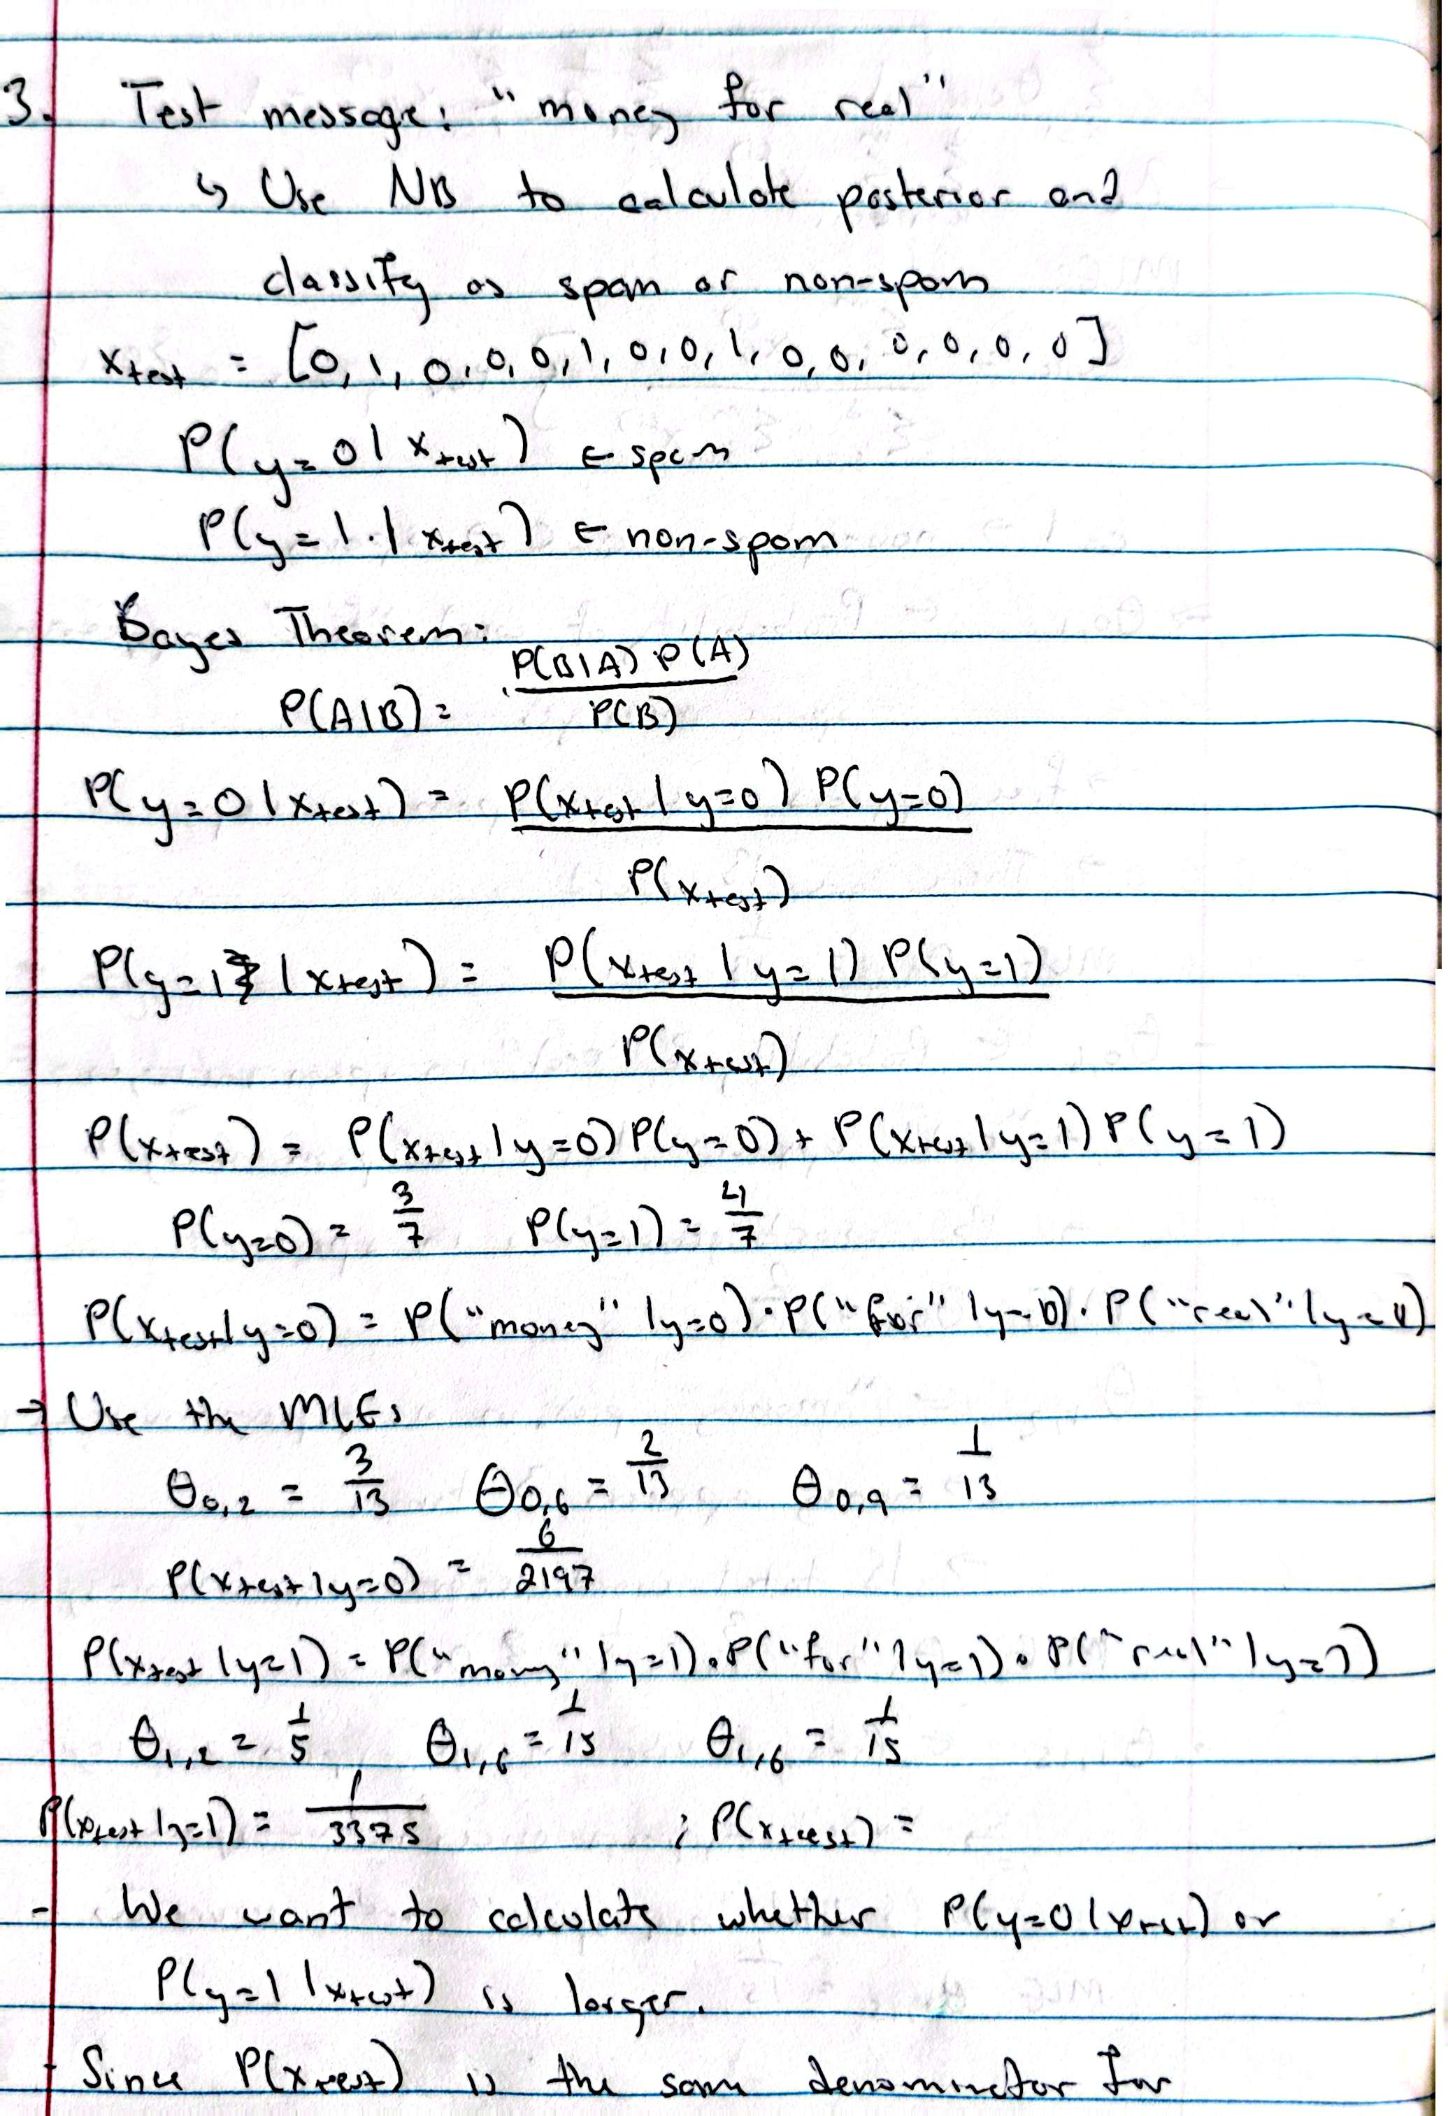 3. Test message: "money for real"
↳ Use NB to calculate posterior and
classify as spam or non-spam
x_test = [0, 1, 0, 0, 0, 1, 0, 0, 1, 0, 0, 0, 0, 0, 0]
P(y=0 | x_test) ← spam
P(y=1 | x_test) ← non-spam
Bayes Theorem:
P(A|B) = P(B|A) P(A) / P(B)
P(y=0 | x_test) = P(x_test | y=0) P(y=0) / P(x_test)
P(y=1 | x_test) = P(x_test | y=1) P(y=1) / P(x_test)
P(x_test) = P(x_test | y=0) P(y=0) + P(x_test | y=1) P(y=1)
P(y=0) = 3/7 P(y=1) = 4/7
P(x_test | y=0) = P("money" | y=0) · P("for" | y=0) · P("real" | y=0)
→ Use the MLEs
θ0,2 = 3/13 θ0,6 = 2/13 θ0,9 = 1/13
P(x_test | y=0) = 6/2197
P(x_test | y=1) = P("money" | y=1) · P("for" | y=1) · P("real" | y=1)
θ1,2 = 1/5 θ1,6 = 1/15 θ1,6 = 1/15
P(x_test | y=1) = 1/3375 ; P(x_test) =
- We want to calculate whether P(y=0 | x_test) or
P(y=1 | x_test) is larger.
- Since P(x_test) is the same denominator for